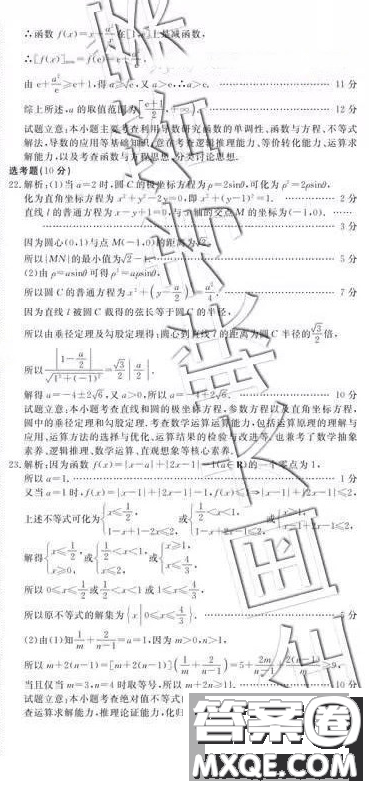 ∴函数 f(x)=x+a²/x 在[1,e]上是减函数,
∴[f(x)]min=f(e)=e+a²/e.
由 e+a²/e≥e+1,得 a≥√e,又 a>e,∴a>e. 11 分
综上所述,a 的取值范围为[(e+1)/2,+∞). 12 分
试题立意:本小题主要考查利用导数研究函数的单调性、函数与方程、不等式
解法、导数的应用等基础知识;意在考查逻辑推理能力、等价转化能力、运算求
解能力,以及考查函数与方程思想、分类讨论思想.
选考题(10 分)
22.解析:(1)当 a=2 时,圆 C 的极坐标方程为 ρ=2sinθ,可化为 ρ²=2ρsinθ,
化为直角坐标方程为 x²+y²-2y=0,即 x²+(y-1)²=1. 2 分
直线 l 的普通方程为 x-y+1=0,与 x 轴的交点 M 的坐标为(-1,0).
3 分
因为圆心(0,1)与点 M(-1,0)的距离为√2,
所以|MN|的最小值为√2-1. 5 分
(2)由 ρ=asinθ 可得 ρ²=aρsinθ,
所以圆 C 的普通方程为 x²+(y-a/2)²=a²/4. 7 分
因为直线 l 被圆 C 截得的弦长等于圆 C 的半径,
所以由垂径定理及勾股定理得:圆心到直线 l 的距离为圆 C 半径的 √3/2 倍,
所以 |1-a/2|/√(1²+(-1)²)=√3/2|a/2|.
解得 a=-4±2√6,又 a>0,所以 a=-4+2√6. 10 分
试题立意:本小题考查直线和圆的极坐标方程,参数方程以及直角坐标方程,
圆中的垂径定理和勾股定理.考查数学运算运算能力,包括运算原理的理解与
应用、运算方法的选择与优化、运算结果的检验与改进等.也兼考了数学抽象
素养、逻辑推理、数学运算、直观想象等核心素养.
23.解析:因为函数 f(x)=|x-a|+|2x-1|-1(a∈R)的一个零点为 1,
所以 a=1. 1 分
又当 a=1 时,f(x)=|x-1|+|2x-1|-1,f(x)≤1⇒|x-1|+|2x-1|≤2,
上述不等式可化为{x≤1/2, 1-x+1-2x≤2, 或{1/2<x<1, 1-x+2x-1≤2, 或{x≥1, x-1+2x-1≤2,
解得{x≤1/2, x≥0, 或{1/2<x<1, x≤2, 或{x≥1, x≤4/3,
所以 0≤x≤1/2 或 1/2<x<1 或 1≤x≤4/3,
所以原不等式的解集为{x|0≤x≤4/3}. 5 分
(2)由(1)知 1/m+2/(n-1)=a=1,因为 m>0,n>1,
所以 m+2(n-1)=[m+2(n-1)](1/m+2/(n-1))=5+2m/(n-1)+2(n-1)/m≥9,
当且仅当 m=3,n=4 时取等号,所以 m+2n≥11. 10 分
试题立意:本小题考查绝对值不等式
查运算求解能力,推理论证能力,化归
答案卷
MXQE.COM